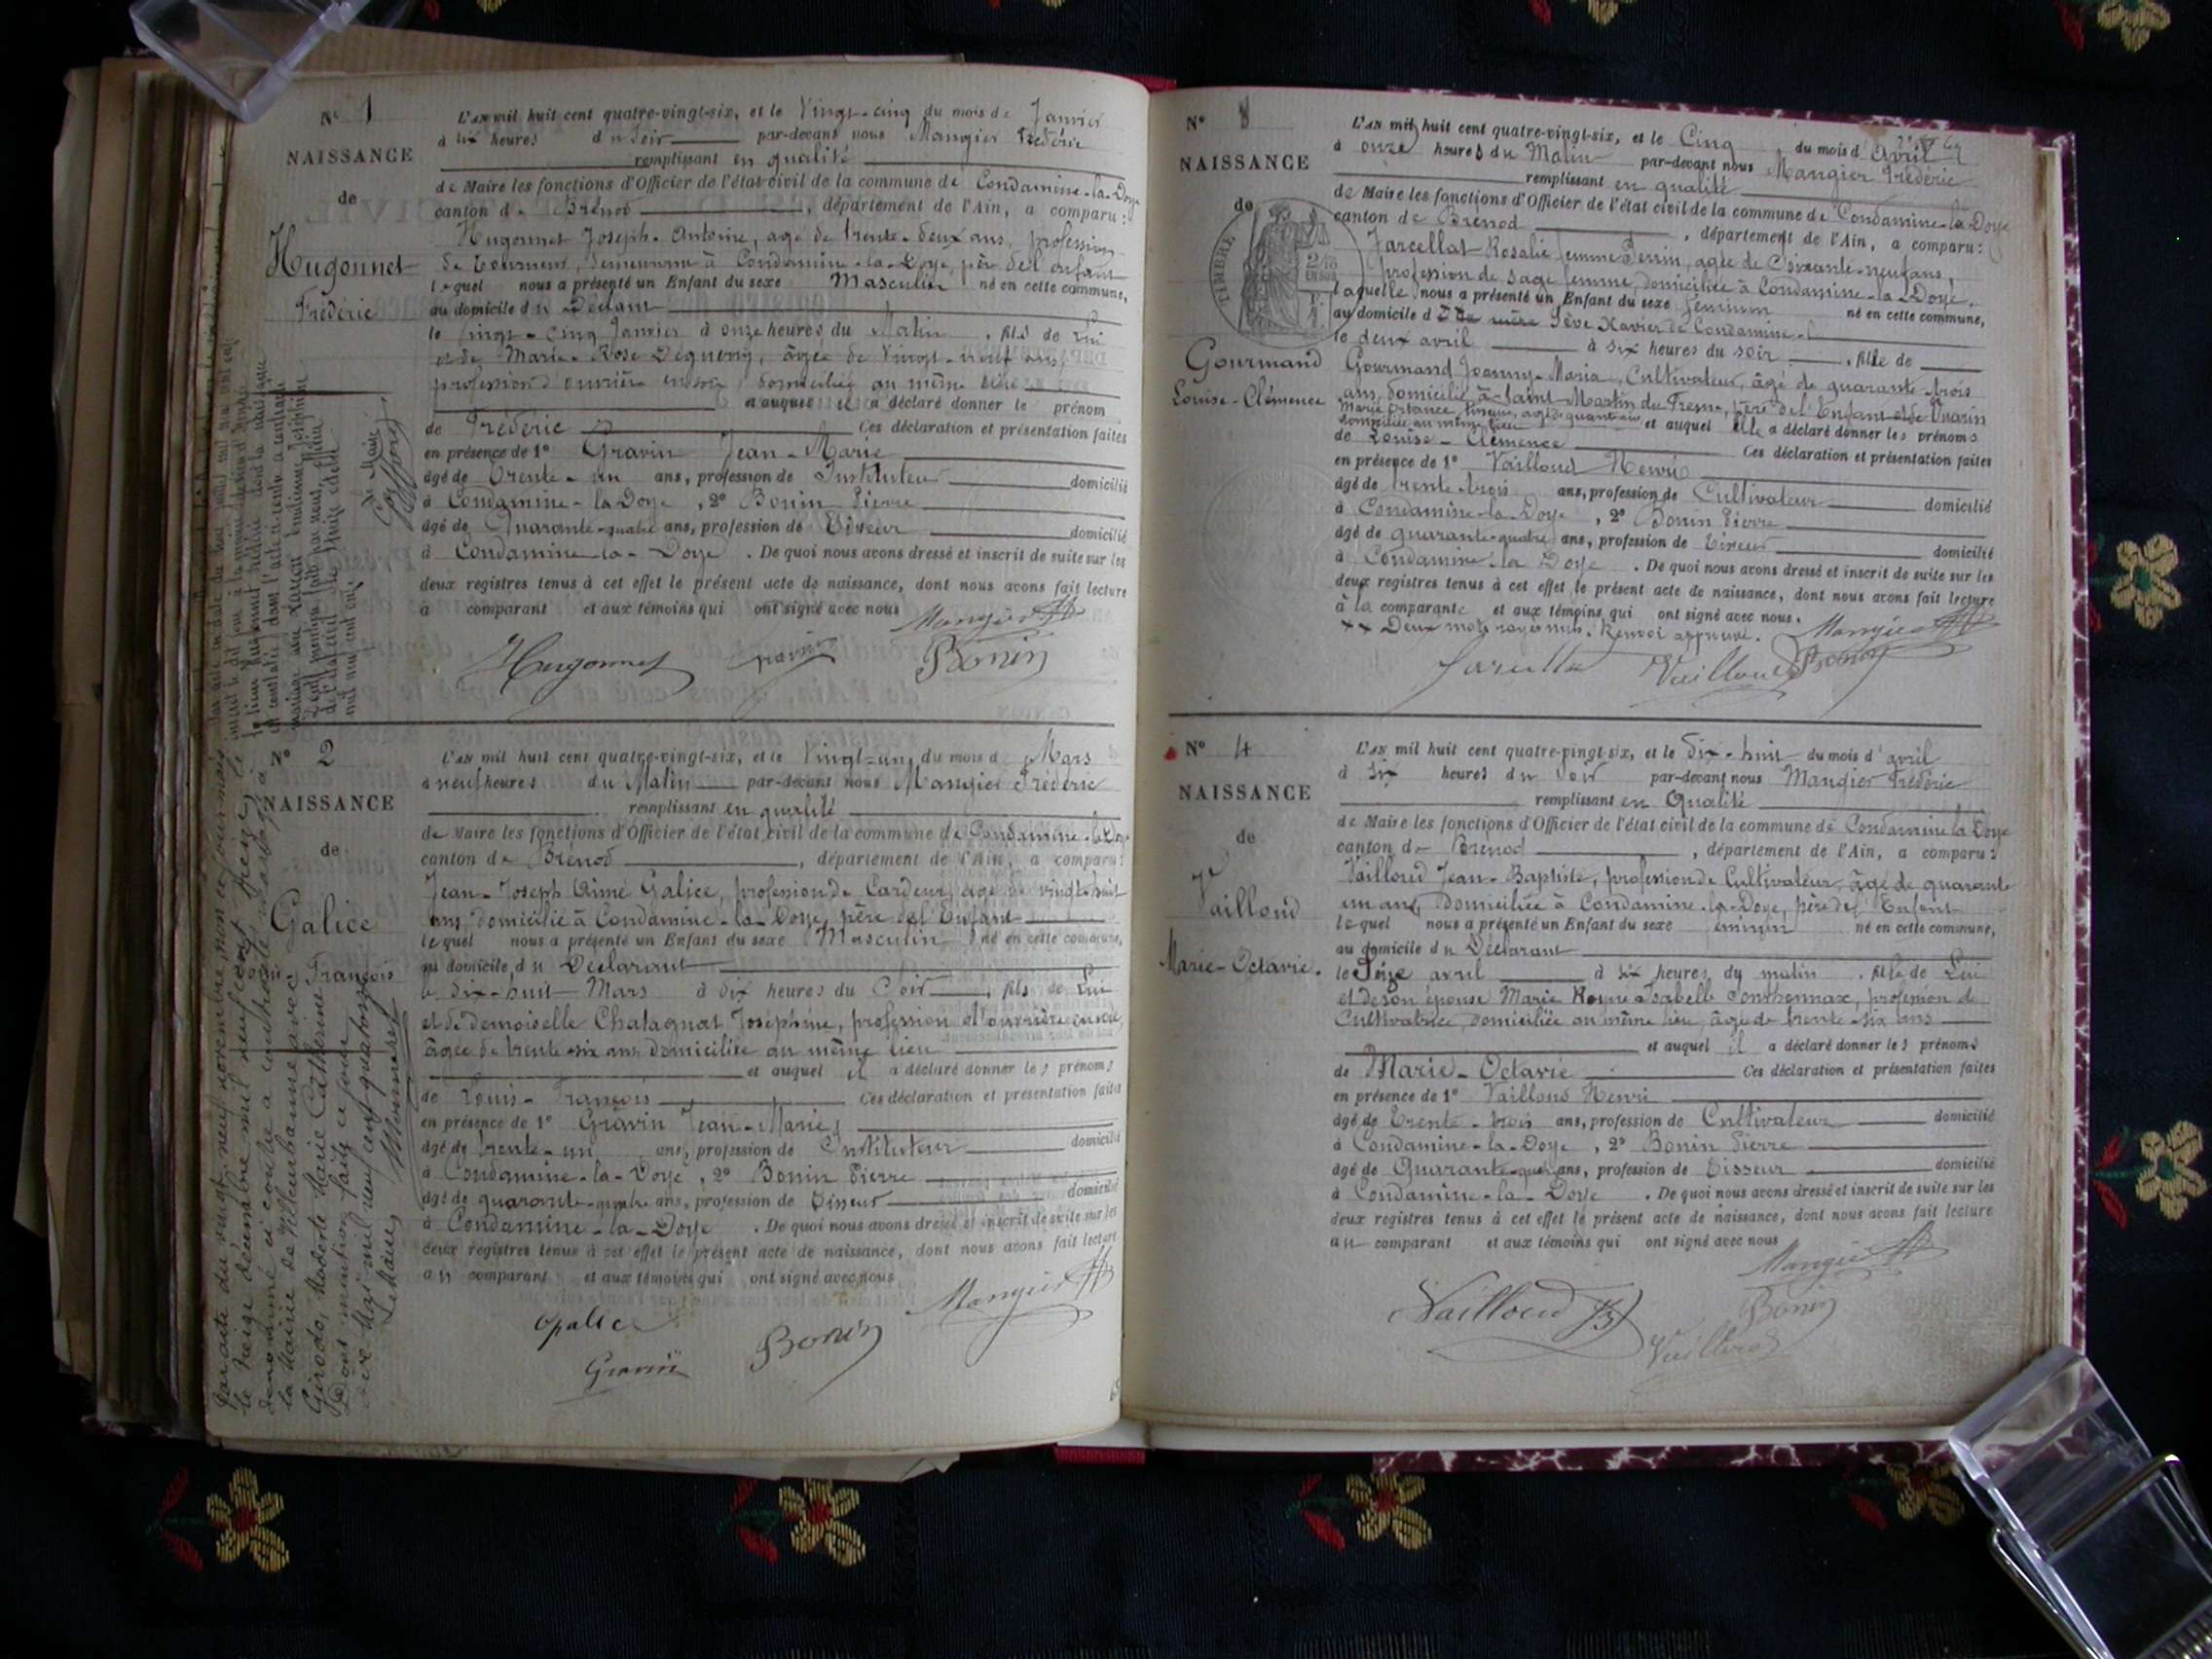 N° 1
NAISSANCE
de
Hugonnet
Frédéric
L'an mil huit cent quatre-vingt-six, et le Vingt-cinq du mois de Janvier
à six heures du Soir par-devant nous Mangier Frédéric
remplissant en qualité
de Maire les fonctions d'Officier de l'état civil de la commune de Condamine-la-Doye
canton de Brénod, département de l'Ain, a comparu :
Hugonnet Joseph-Antoine, agé de trente-deux ans, profession
de tourneur, demeurant à Condamine-la-Doye, père de l'enfant
lequel nous a présenté un Enfant du sexe Masculin né en cette commune,
au domicile du Déclarant
le Vingt-cinq Janvier à onze heures du Matin, fils de Lui
et de Marie-Rose, âgée de Vingt-neuf ans,
profession d'ouvrière en soie, domiciliée au même lieu
et auquel il a déclaré donner le prénom
de Frédéric Ces déclaration et présentation faites
en présence de 1° Gravin Jean-Marie
âgé de trente-un ans, profession de Instituteur domicilié
à Condamine-la Doye, 2° Bonin Pierre
âgé de Quarante-quatre ans, profession de Tisseur domicilié
à Condamine-la-Doye. De quoi nous avons dressé et inscrit de suite sur les
deux registres tenus à cet effet le présent acte de naissance, dont nous avons fait lecture
à comparant et aux témoins qui ont signé avec nous
Mangier
Hugonnet Gravin Bonin
N° 2
NAISSANCE
de
Galice
François
L'an mil huit cent quatre-vingt-six, et le Vingt-un du mois de Mars
à neuf heures du Matin par-devant nous Mangier Frédéric
remplissant en qualité
de Maire les fonctions d'Officier de l'état civil de la commune de Condamine-la-Doye
canton de Brénod, département de l'Ain, a comparu :
Jean-Joseph Aimé Galice, profession de Cardeur, âgé de vingt-huit
ans, domicilié à Condamine-la-Doye, père de l'Enfant
lequel nous a présenté un Enfant du sexe Masculin né en cette commune,
au domicile du Déclarant
le dix-huit Mars à dix heures du Soir, fils de Lui
et de demoiselle Chatagnat Joséphine, profession d'ouvrière en soie,
âgée de trente-six ans, domiciliée au même lieu
et auquel il a déclaré donner les prénoms
de Louis-François Ces déclaration et présentation faites
en présence de 1° Gravin Jean-Marie
âgé de trente-un ans, profession de Instituteur domicilié
à Condamine-la-Doye, 2° Bonin Pierre
âgé de quarante-quatre ans, profession de Tisseur domicilié
à Condamine-la-Doye. De quoi nous avons dressé et inscrit de suite sur les
deux registres tenus à cet effet le présent acte de naissance, dont nous avons fait lecture
au comparant et aux témoins qui ont signé avec nous
Mangier
Galice
Gravin Bonin
Par acte du vingt neuf novembre
le treize décembre mil neuf cent treize, le
dénommé ci contre a contracté mariage à
la Mairie de Villeurbanne avec
Girodo, Modeste Marie Catherine
Dont mention faite ce jour
Mai mil neuf cent quatorze
Le Maire,
Le Maire
N° 3
NAISSANCE
de
TIMBRE
Gourmand
Louise-Clémence
L'an mil huit cent quatre-vingt-six, et le Cinq du mois d'Avril
à onze heures du Matin par-devant nous Mangier Frédéric
remplissant en qualité
de Maire les fonctions d'Officier de l'état civil de la commune de Condamine-la Doye
canton de Brénod, département de l'Ain, a comparu :
Jarcellat Rosalie femme Perrin, agée de Soixante-neuf ans,
profession de sage femme, domiciliée à Condamine-la Doye.
laquelle nous a présenté un Enfant du sexe féminin né en cette commune,
au domicile de Sève Xavier de Condamine
le deux avril à six heures du soir, fille de
Gourmand Joanny-Maria, Cultivateur, âgé de quarante-trois
ans, domicilié à Saint-Martin du Fresne, père de l'Enfant et de
domiciliée au même lieu et auquel elle a déclaré donner les prénoms
de Louise-Clémence Ces déclaration et présentation faites
en présence de 1° Vailloud Henri
âgé de trente-trois ans, profession de Cultivateur domicilié
à Condamine-la-Doye, 2° Bonin Pierre
âgé de quarante-quatre ans, profession de Tisseur domicilié
à Condamine-la Doye. De quoi nous avons dressé et inscrit de suite sur les
deux registres tenus à cet effet le présent acte de naissance, dont nous avons fait lecture
à la comparante et aux témoins qui ont signé avec nous.
Deux mots rayés nuls. Renvoi approuvé. Mangier
Vailloud Bonin
N° 4
NAISSANCE
de
Vailloud
Marie-Octavie.
L'an mil huit cent quatre-vingt-six, et le dix-huit du mois d'avril
à six heures du Soir par-devant nous Mangier Frédéric
remplissant en Qualité
de Maire les fonctions d'Officier de l'état civil de la commune de Condamine la Doye
canton de Brénod, département de l'Ain, a comparu :
Vailloud Jean-Baptiste, profession de Cultivateur, âgé de quarante
un ans, domicilié à Condamine-la-Doye, père de l'Enfant
lequel nous a présenté un Enfant du sexe féminin né en cette commune,
au domicile du Déclarant
le Seize avril à six heures du matin, fille de Lui
et de son épouse Marie Reyne Isabelle Ponthennax, profession de
Cultivatrice, domiciliée au même lieu, âgée de trente-six ans
et auquel il a déclaré donner les prénoms
de Marie-Octavie Ces déclaration et présentation faites
en présence de 1° Vailloud Henri
âgé de trente-trois ans, profession de Cultivateur domicilié
à Condamine-la-Doye, 2° Bonin Pierre
âgé de Quarante-quatre ans, profession de Tisseur domicilié
à Condamine-la-Doye. De quoi nous avons dressé et inscrit de suite sur les
deux registres tenus à cet effet le présent acte de naissance, dont nous avons fait lecture
au comparant et aux témoins qui ont signé avec nous
Mangier
Vailloud Bonin
Vailloud